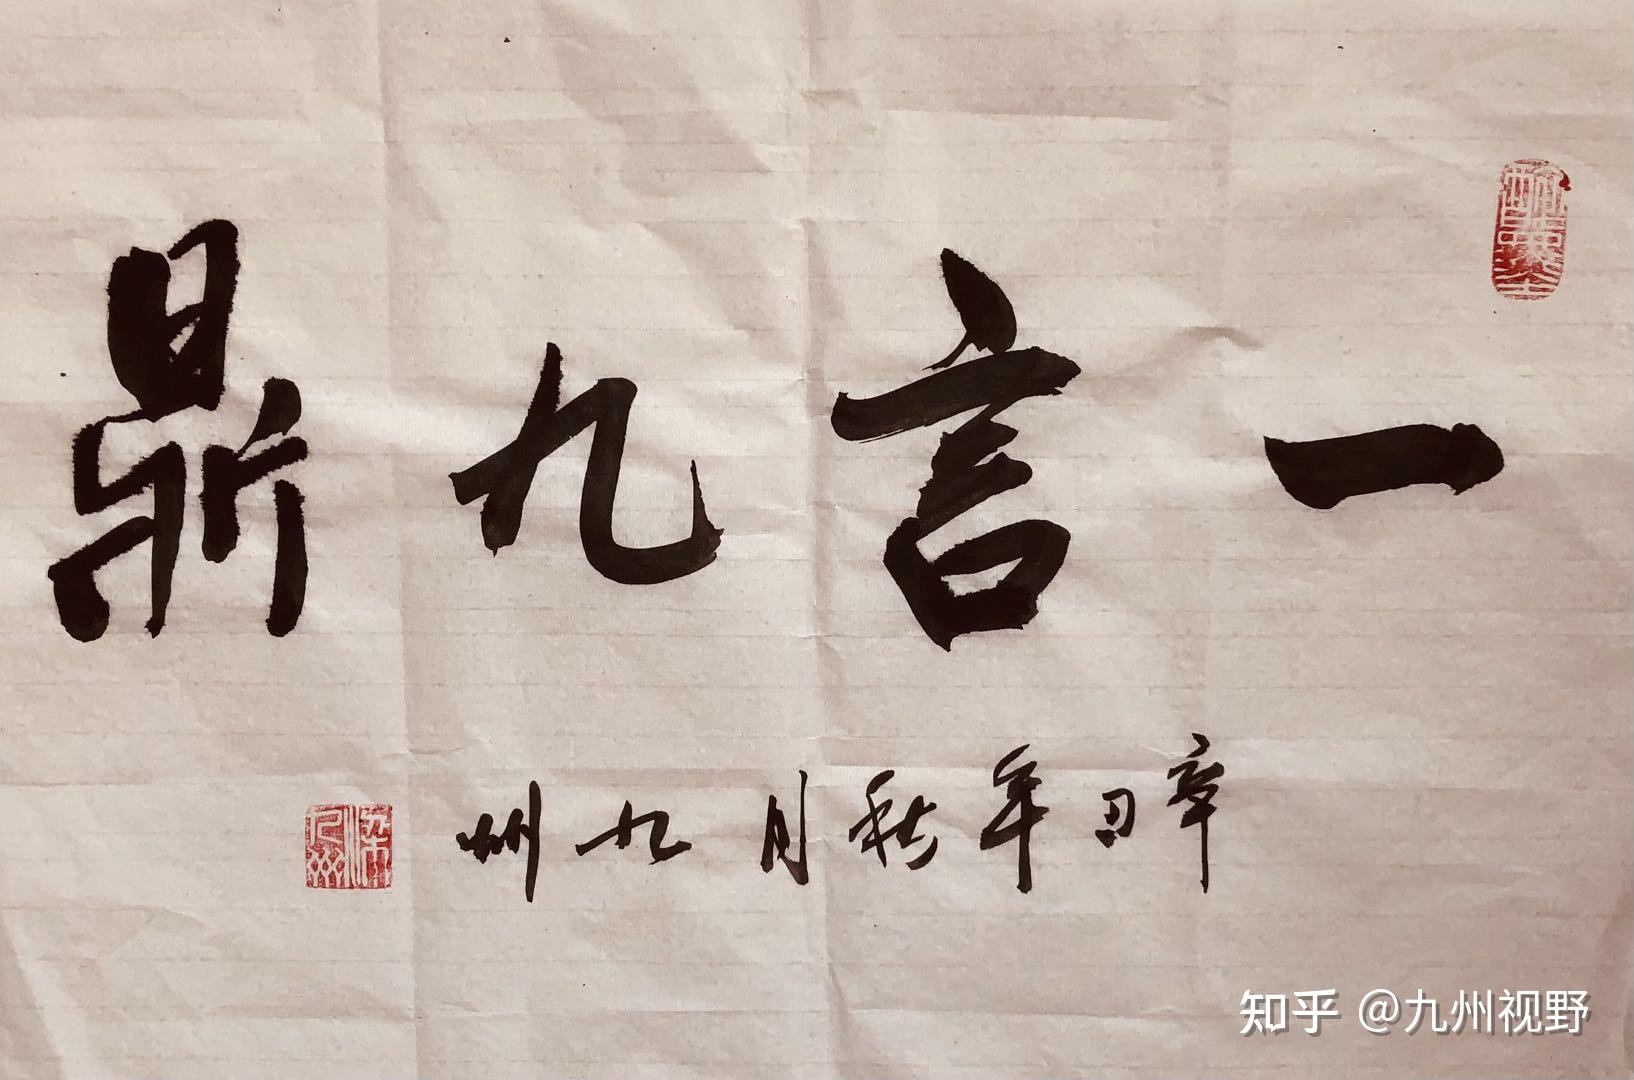 一言九鼎
辛丑年秋月九州
梁九州
知乎 @九州视野